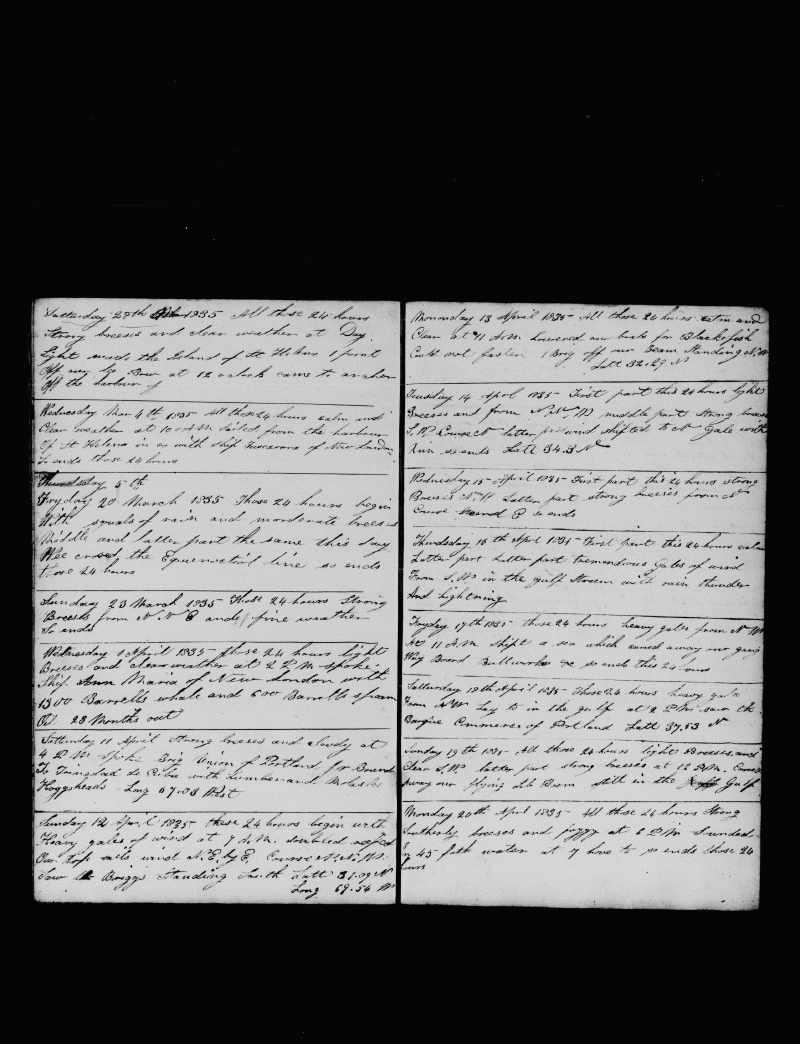 Satturday 28th Feb 1835 All those 24 hours
Strong breeses and clear weather at Day
Light made the Island of St Helena 1 point
Off my Bow at 12 oclock came to ancher
Off the harbour of
Wednesday Mar 4th 1835 All those 24 hours calm and
Clear weather at 10 A.M. Sailed from the harbour
Of St Helena in co with Ship Tuscarora of New London
So ends those 24 hours
Thursday 5th
Fryday 20 March 1835 Those 24 hours begin
With squals of rain and morderate breeses
Middle and latter part the same this day
Wee crosed the Equenoctial line so ends
those 24 hours
Sunday 23 March 1835 Those 24 hours Strong
Breeses from N N E and fine weather
So ends
Wednesday 1 April 1835 those 24 hours light
Breeses and clear weather at 2 P.M. spoke
Ship Ann Maria of New London with
1300 Barrells whale and 600 Barrells sparm
Oil 23 Months out
Satturday 11 April Strong breeses and cloudy at
4 P M Spoke Brig Union of Portland Bound
To Trinedad de Cuba with Lumber and Molases
Hoggsheads Long 67.03 West
Sunday 12 April 1835 these 24 hours begin with
Heavy gales of wind at 7 A.M. doubled reefed
Our top sails wind N.E. by E. Course N.W.
Saw Briggs Standing South Latt 31.09 N
Long 69.54 W
Mononday 13 April 1835 All those 24 hours calm and
Clear at 11 A.M. lowered our boats for Blackfish
Could not fasten 1 Brig off our beam Standing N.W
Latt 32.29 N
Tuesday 14 April 1835 First part this 24 hours light
Breeses and from N.W. middle part Strong breeses
S.W. Course N latter part wind shifted to N Gale with
Rain so ends Latt 34.3 N
Wednesday 15 April 1835 First part this 24 hours strong
Breeses N.W Latter part strong breeses from N
Course E so ends
Thursday 16th April 1835 First part this 24 hours calm
Latter part Latter part tremendous Gales of wind
From S.W. in the gulf Stream with rain thunder
And lightning
Fryday 17th 1835 those 24 hours heavy gales from N W
At 11 A.M. shipt a sea which caried away our gang
Way Board Bullworks &c so ends this 24 hours
Satturday 18th April 1835 Those 24 hours heavy gale
From N.W. Lay to in the gulf at 2 P.M. saw the
Barque Commerce of Portland Latt 37.53 N
Sunday 19th 1835 All those 24 hours light Breeses and
Clear S.W. latter part strong breeses at 12 P.M. Carried
Away our flying Jib Boom still in the Gulf
Monday 20th April 1835 All those 24 hours Strong
Sutherly breeses and foggy at 2 P.M. Sounded
In 45 fath water at 7 hove to so ends those 24
hours